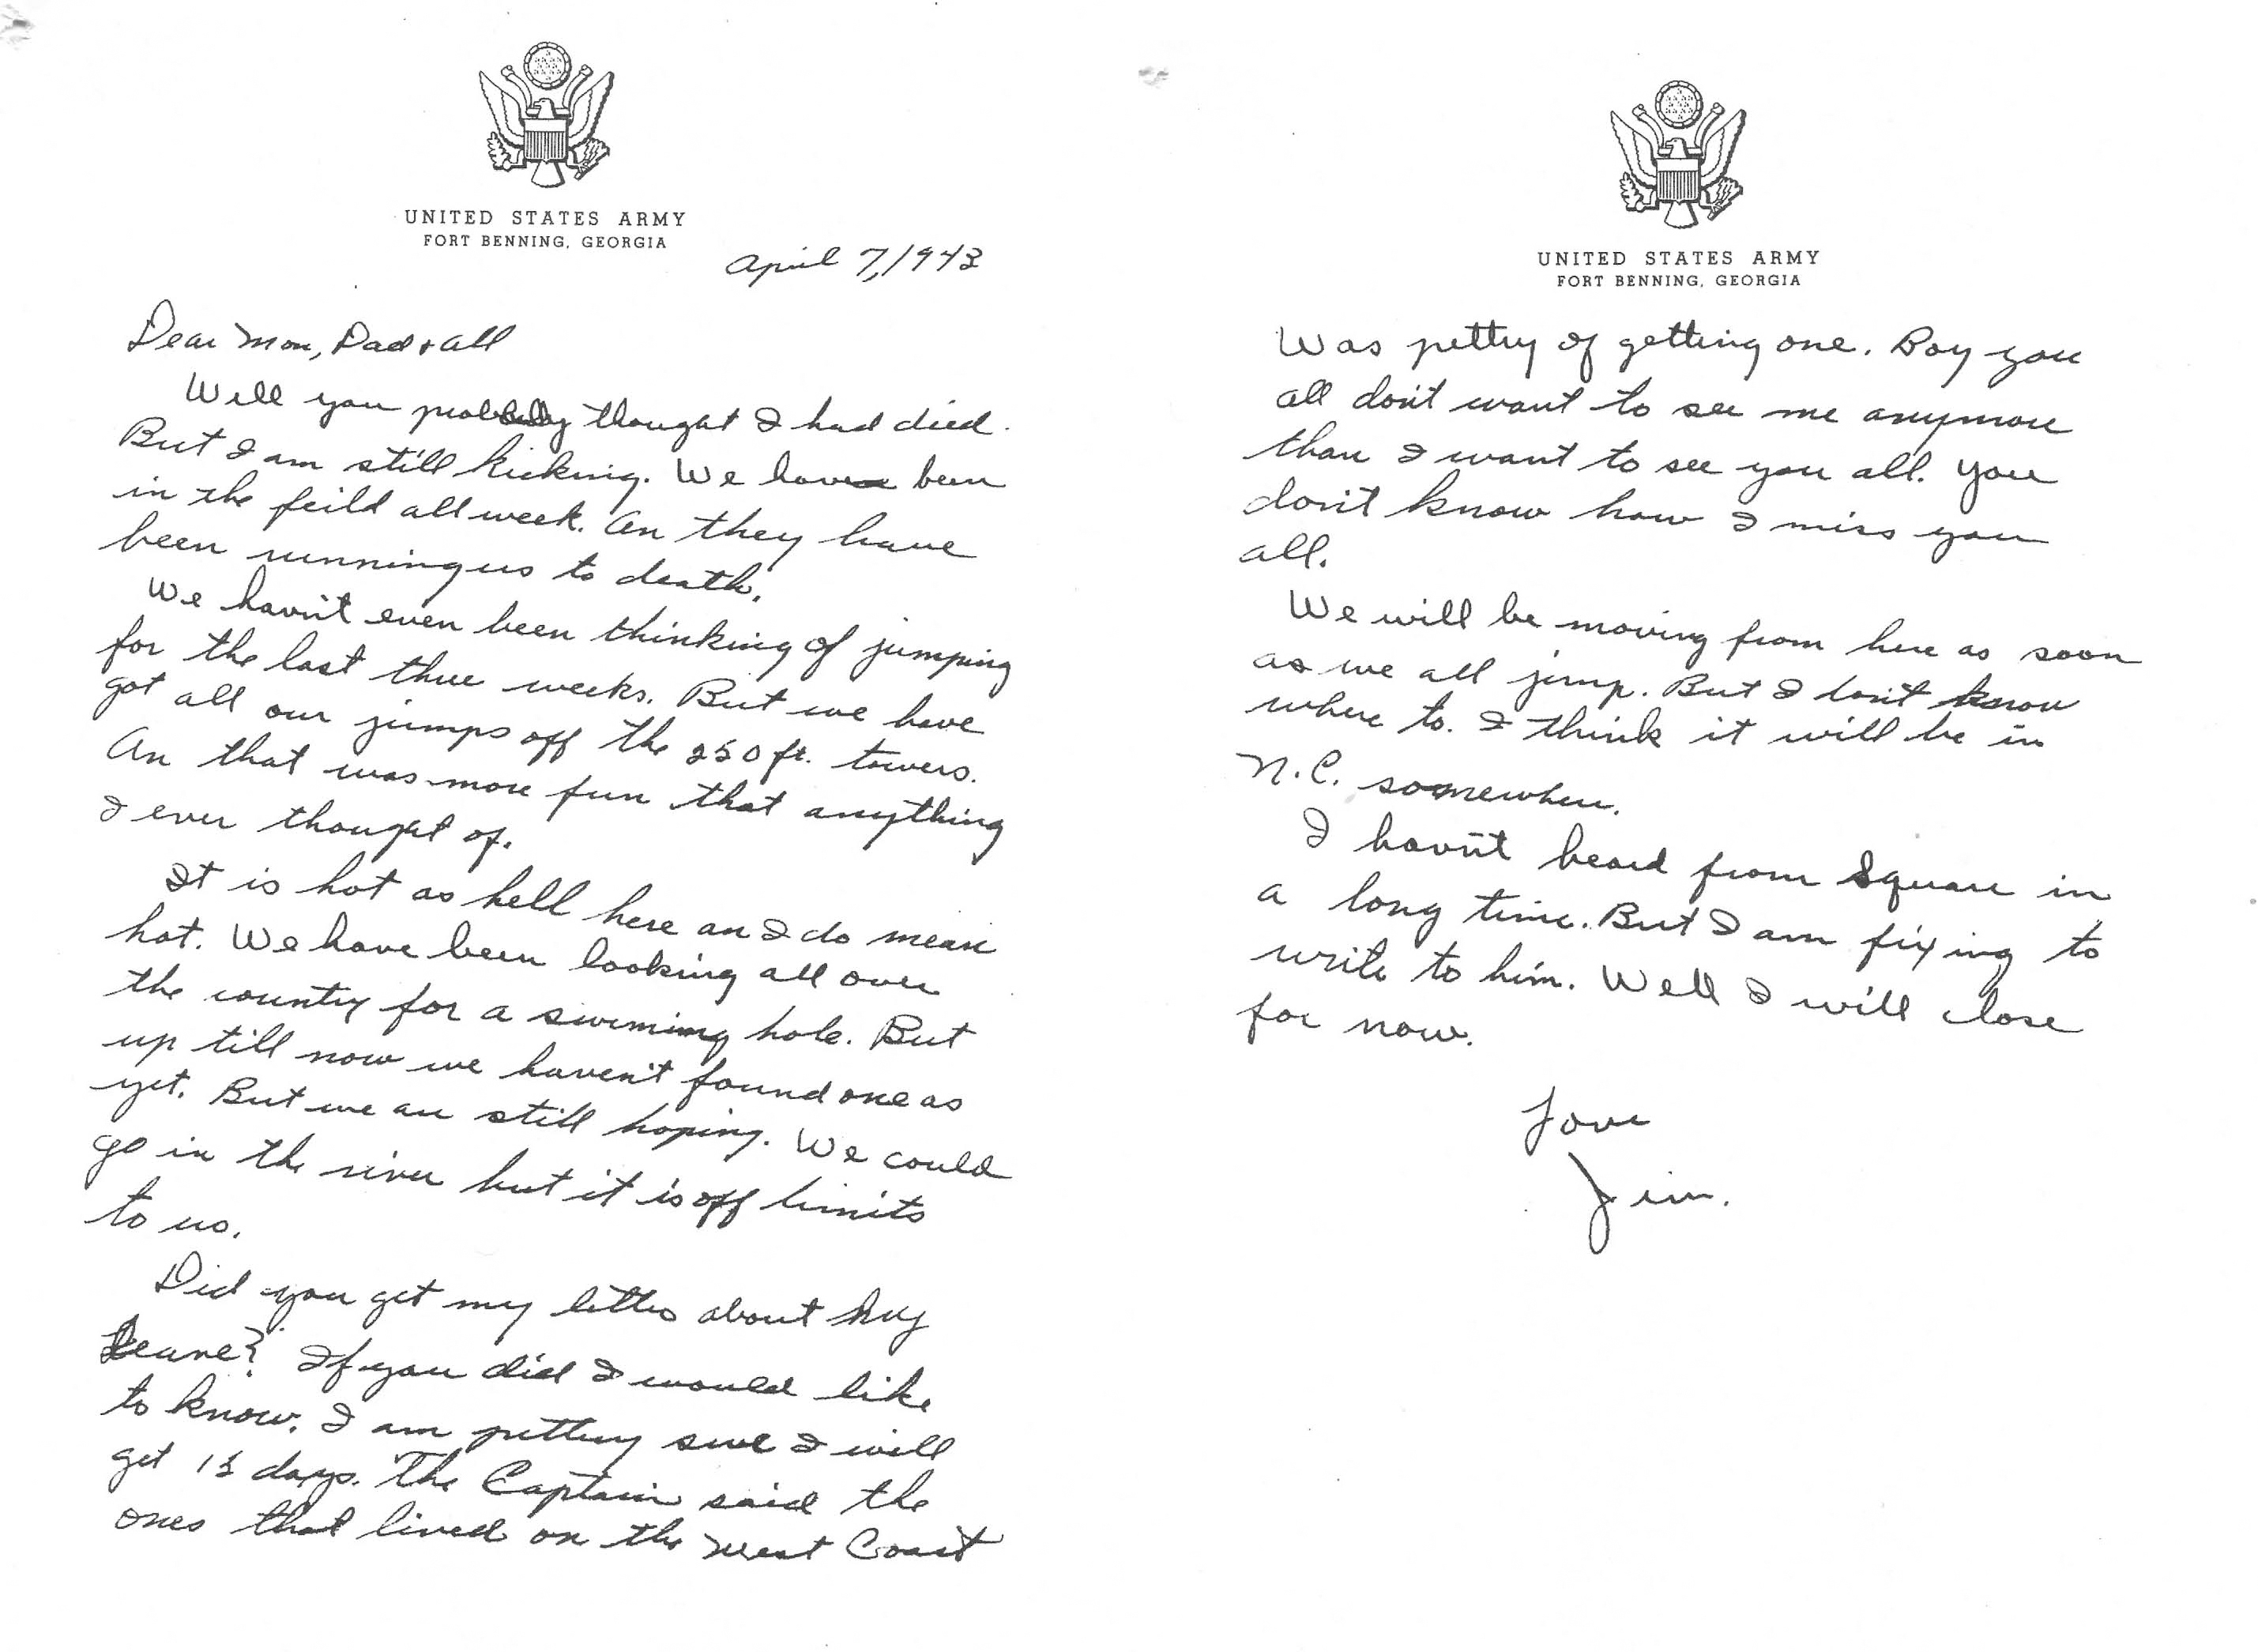 UNITED STATES ARMY
FORT BENNING, GEORGIA
April 7, 1943
Dear Mom, Dad & all
Well you probably thought I had died.
But I am still kicking. We have been
in the feild all week. An they have
been running us to death.
We hav'nt even been thinking of jumping
for the last three weeks. But we have
got all our jumps off the 250 ft. towers.
An that was more fun that anything
I ever thought of.
It is hot as hell here an I do mean
hot. We have been looking all over
the country for a swiming hole. But
up till now we haven't found one as
yet. But we are still hoping. We could
go in the river but it is off limits
to us.
Did you get my letter about my
Leave? If you did I would like
to know. I am pettry sure I will
get 15 days. The Captain said the
ones that lived on the West Coast
UNITED STATES ARMY
FORT BENNING, GEORGIA
Was pettry of getting one. Boy you
all don't want to see me anymore
than I want to see you all. You
don't know how I miss you
all.
We will be moving from here as soon
as we all jump. But I don't know
where to. I think it will be in
N.C. somewhere.
I hav'nt heard from Square in
a long time. But I am fixing to
write to him. Well I will close
for now.
Love
Jim.